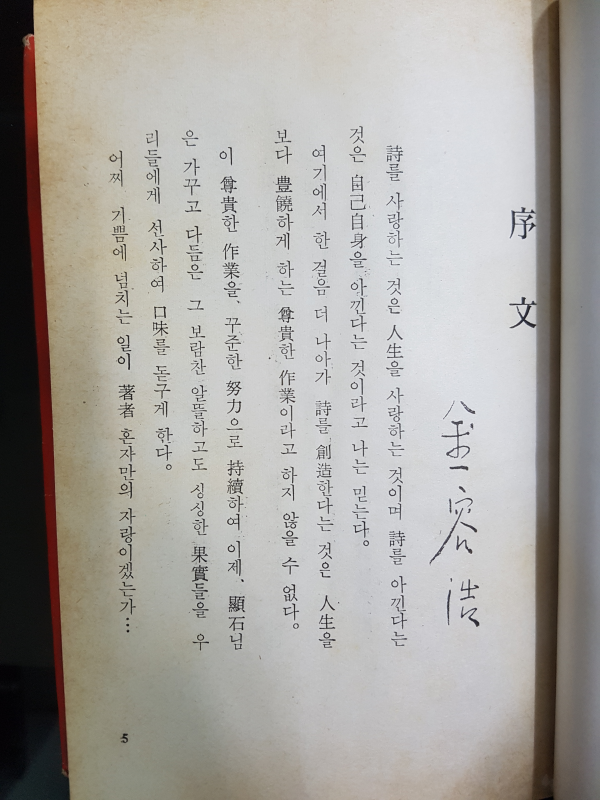 序文
金容浩
詩를 사랑하는 것은 人生을 사랑하는 것이며 詩를 아낀다는
것은 自己自身을 아낀다는 것이라고 나는 믿는다。
여기에서 한 걸음 더 나아가 詩를 創造한다는 것은 人生을
보다 豊饒하게 하는 尊貴한 作業이라고 하지 않을 수 없다。
이 尊貴한 作業을、꾸준한 努力으로 持續하여 이제、顯石님
은 가꾸고 다듬은 그 보람찬 알뜰하고도 싱싱한 果實들을 우
리들에게 선사하여 口味를 돋구게 한다。
어찌 기쁨에 넘치는 일이 著者 혼자만의 자랑이겠는가…
5